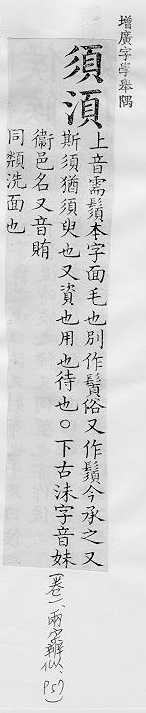 增廣字學舉隅
須湏
上音需鬚本字面毛也別作鬢俗又作鬚今承之又
斯須猶須臾也又資也用也待也○下古沬字音妹
衞邑名又音賄
同纇洗面也
(卷二、兩字辨似、P57)